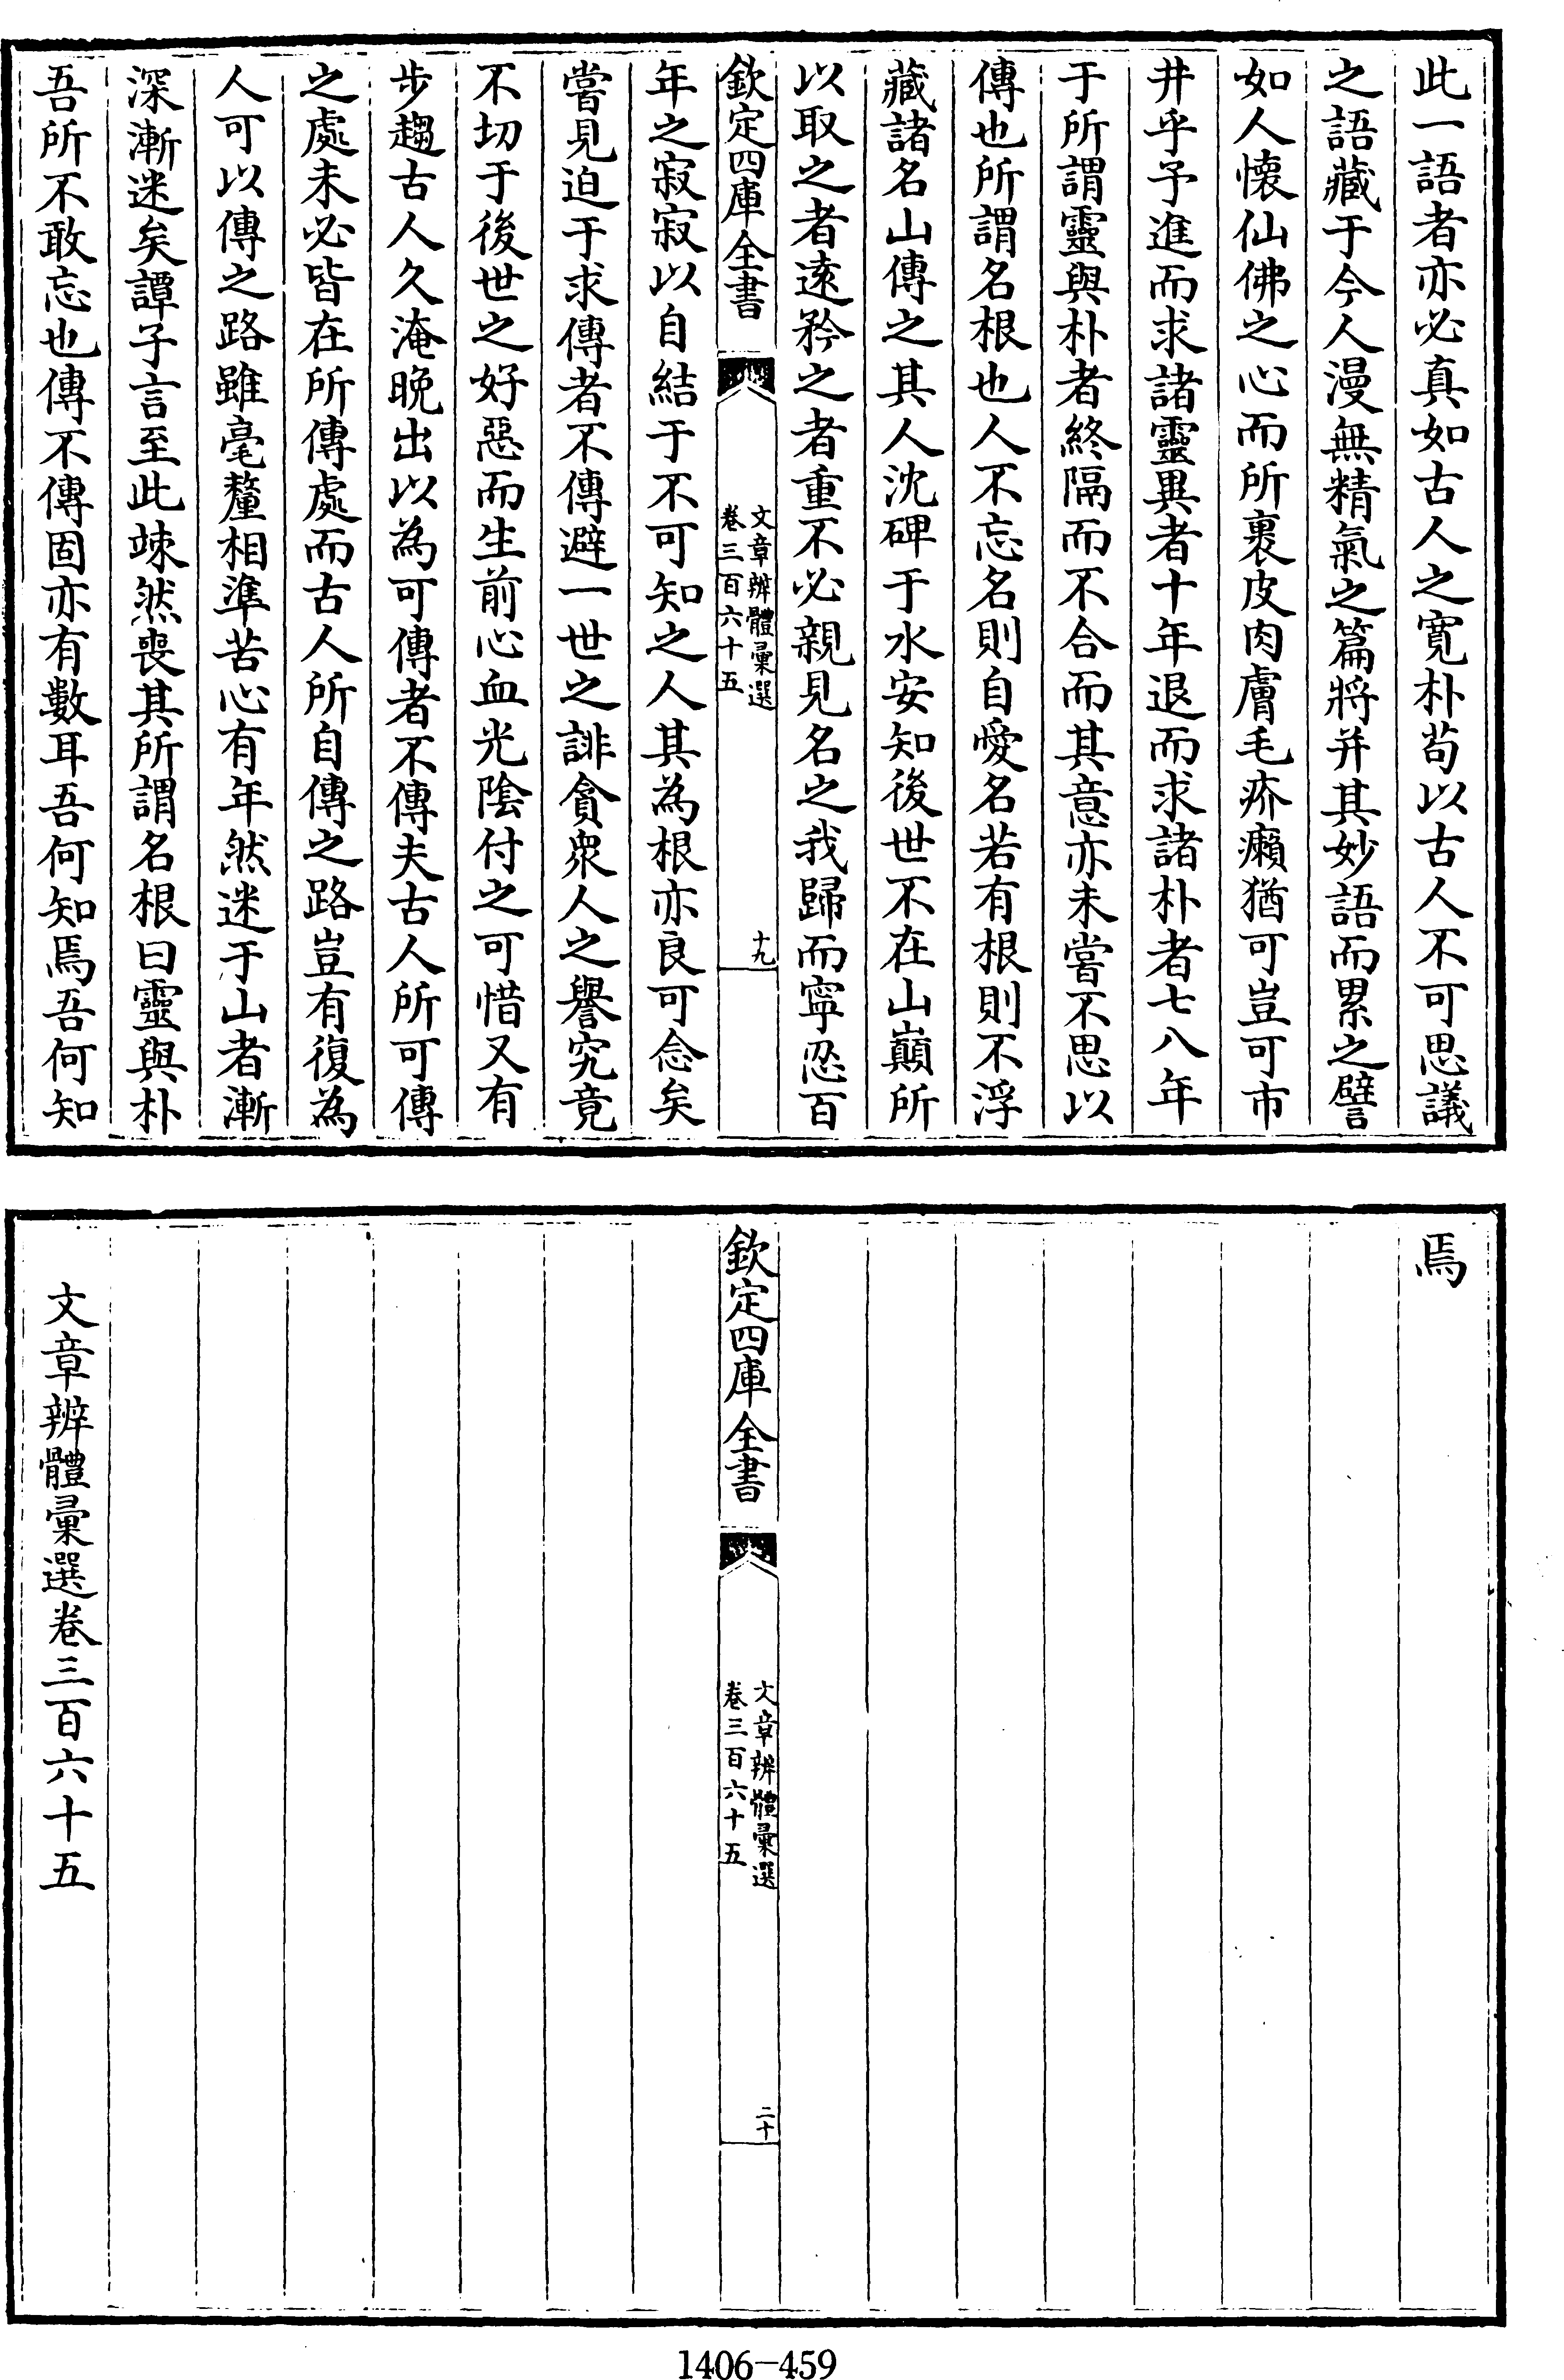 此一語者亦必真如古人之寬朴苟以古人不可思議
之語藏于今人漫無精氣之篇將并其妙語而累之譬
如人懷仙佛之心而所裹皮肉膚毛疥癩猶可豈可市
井乎予進而求諸靈異者十年退而求諸朴者七八年
于所謂靈與朴者終隔而不合而其意亦未嘗不思以
傳也所謂名根也人不忘名則自愛名若有根則不浮
藏諸名山傳之其人沈碑于水安知後世不在山巔所
以取之者遠矜之者重不必親見名之我歸而寧忍百
欽定四庫全書
文章辨體彙選
卷三百六十五
十九
年之寂寂以自結于不可知之人其為根亦良可念矣
嘗見迫于求傳者不傳避一世之誹貪衆人之譽究竟
不切于後世之好惡而生前心血光陰付之可惜又有
步趨古人久淹晚出以為可傳者不傳夫古人所可傳
之處未必皆在所傳處而古人所自傳之路豈有復為
人可以傳之路雖毫釐相準苦心有年然迷于山者漸
深漸迷矣譚子言至此竦然喪其所謂名根曰靈與朴
吾所不敢忘也傳不傳固亦有數耳吾何知焉吾何知
焉
欽定四庫全書
文章辨體彙選
卷三百六十五
二十
文章辨體彙選卷三百六十五
1406-459